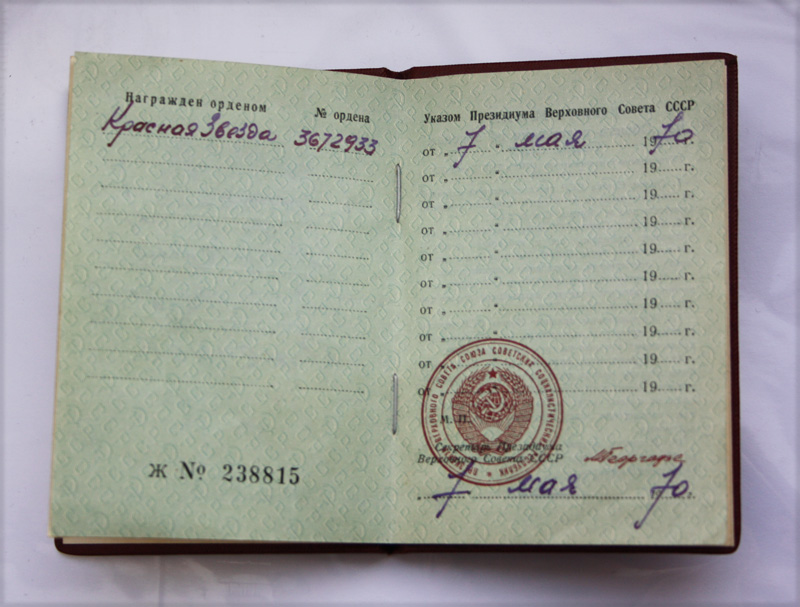 Награжден орденом
№ ордена
Красная Звезда 3672933
Ж № 238815
Указом Президиума Верховного Совета СССР
от „ 7 “ мая 1970
от „ “ 19 г.
от „ “ 19 г.
от „ “ 19 г.
от „ “ 19 г.
от „ “ 19 г.
от „ “ 19 г.
от „ “ 19 г.
от „ “ 19 г.
от „ “ 19 г.
М. П.
Секретарь Президиума
Верховного Совета СССР
7 мая 70 г.